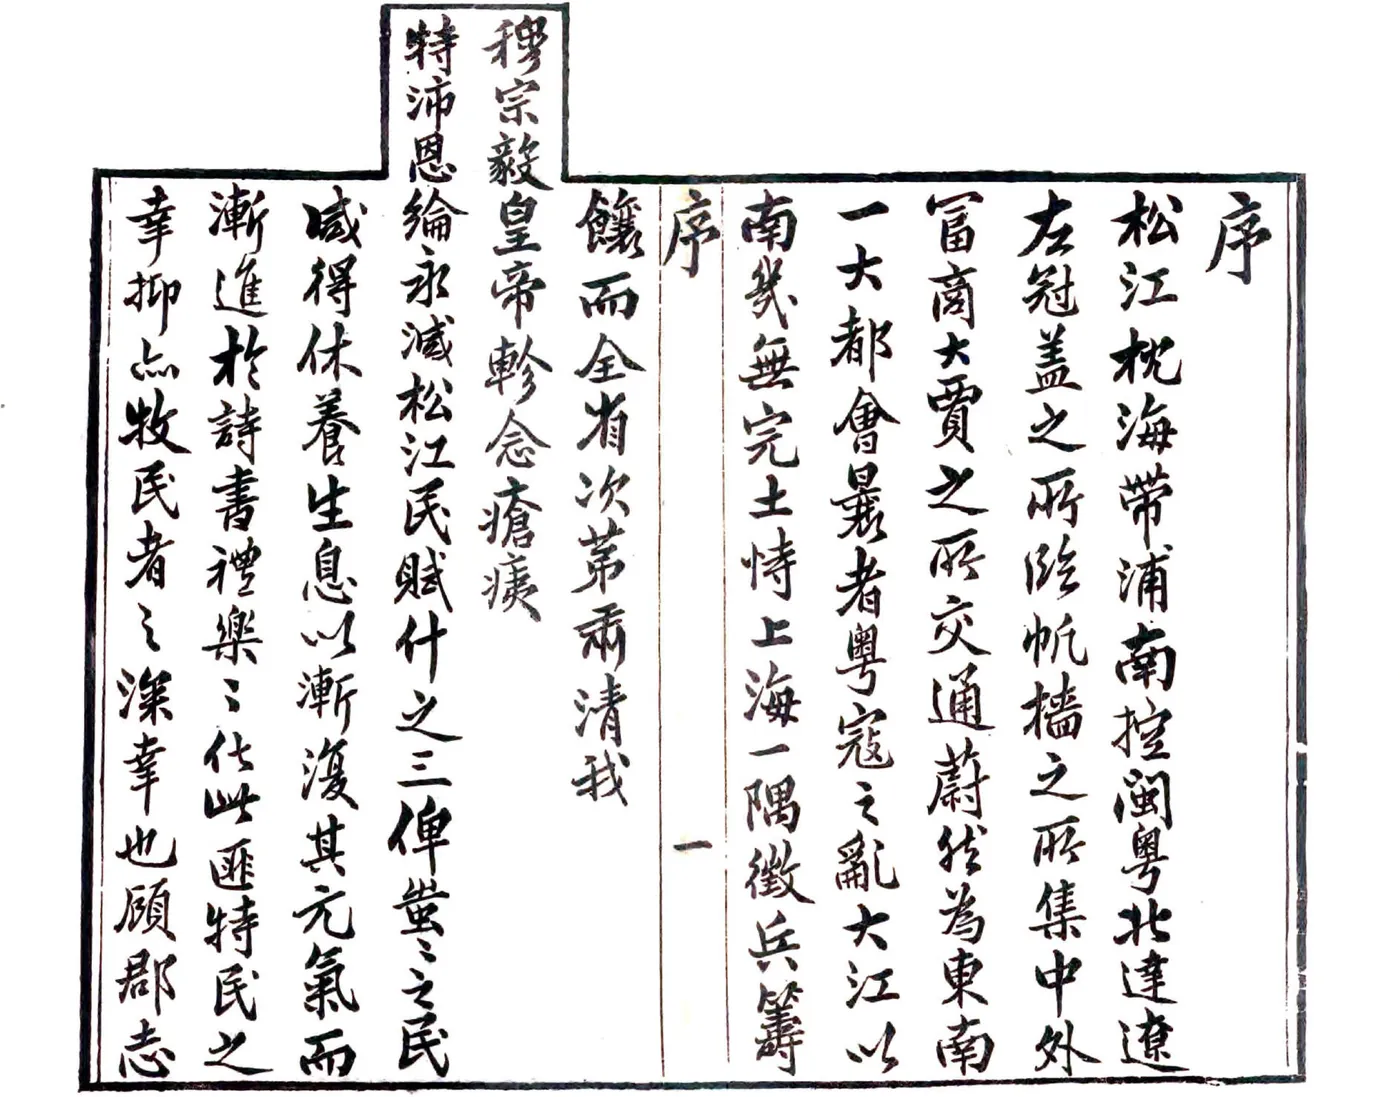 序
松江枕海帶浦南控閩粵北達遼
左冠蓋之所臨帆檣之所集中外
富商大賈之所交通蔚然為東南
一大都會曩者粵寇之亂大江以
南幾無完土恃上海一隅徵兵籌
序
一
饟而全省次第肅清我
穆宗毅皇帝軫念瘡痍
特沛恩綸永減松江民賦什之三俾蚩〻之民
咸得休養生息以漸復其元氣而
漸進於詩書禮樂〻化此匪特民之
幸抑亦牧民者之深幸也顧郡志